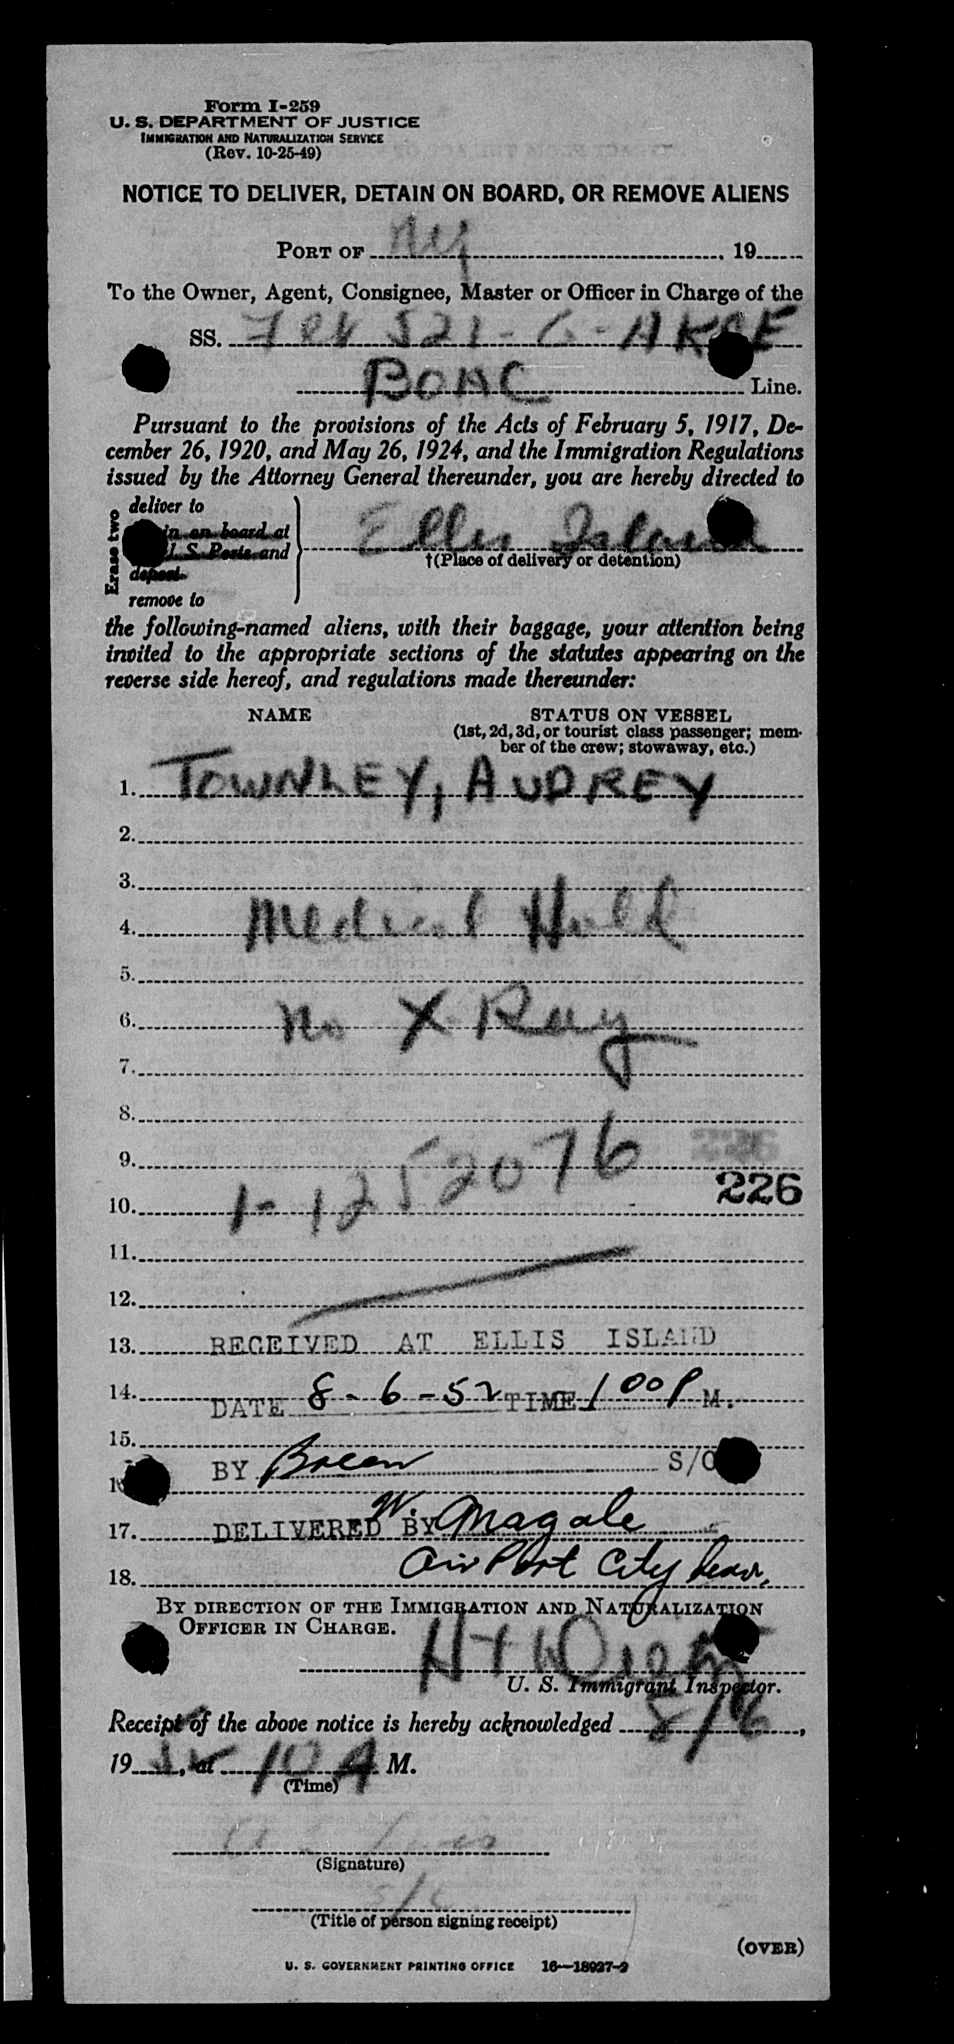 Form I-259
U. S. DEPARTMENT OF JUSTICE
IMMIGRATION AND NATURALIZATION SERVICE
(Rev. 10-25-49)
NOTICE TO DELIVER, DETAIN ON BOARD, OR REMOVE ALIENS
PORT OF NY, 19
To the Owner, Agent, Consignee, Master or Officer in Charge of the
SS. 521-G-AK
BOAC Line.
Pursuant to the provisions of the Acts of February 5, 1917, De-
cember 26, 1920, and May 26, 1924, and the Immigration Regulations
issued by the Attorney General thereunder, you are hereby directed to
Erase two
deliver to
on board at
U. S. Ports and
deport
remove to
Ellis Island
†(Place of delivery or detention)
the following-named aliens, with their baggage, your attention being
invited to the appropriate sections of the statutes appearing on the
reverse side hereof, and regulations made thereunder:
NAME STATUS ON VESSEL
(1st, 2d, 3d, or tourist class passenger; mem-
ber of the crew; stowaway, etc.)
1. TOWNLEY, AUDREY
2.
3.
4. Medical Hold
5.
6. No X Ray
7.
8.
9.
226
10. 1-1252076
11.
12.
13. RECEIVED AT ELLIS ISLAND
14. DATE 8-6-52 TIME 1 00 P M.
15.
BY S/O
17. DELIVERED BY W. Magale
18. Air Port City
BY DIRECTION OF THE IMMIGRATION AND NATURALIZATION
OFFICER IN CHARGE.
U. S. Immigrant Inspector.
Receipt of the above notice is hereby acknowledged 8/6,
19 52, at 10 A M.
(Time)
(Signature)
(Title of person signing receipt)
(OVER)
U. S. GOVERNMENT PRINTING OFFICE 16—18927-2